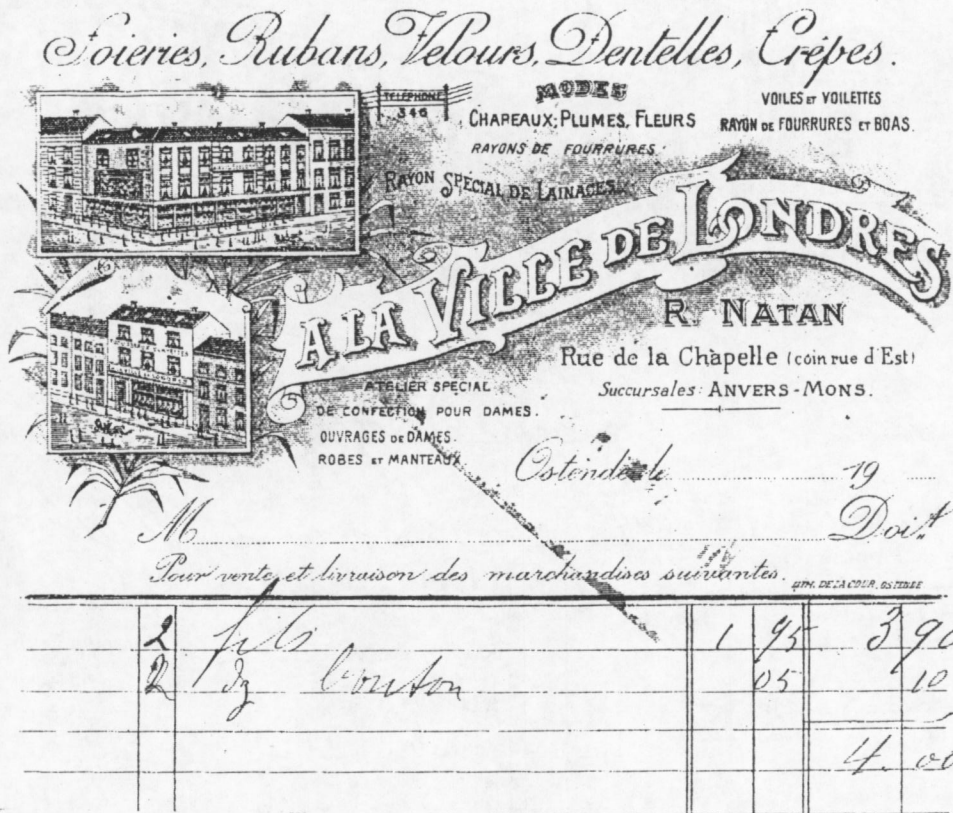 Soieries, Rubans, Velours, Dentelles, Crêpes.
TÉLÉPHONE
346
MODES
CHAPEAUX, PLUMES, FLEURS
RAYONS DE FOURRURES.
VOILES ET VOILETTES
RAYON DE FOURRURES ET BOAS.
RAYON SPÉCIAL DE LAINAGES.
A LA VILLE DE LONDRES
R. NATAN
Rue de la Chapelle (coin rue d'Est)
Succursales: ANVERS-MONS.
ATELIER SPÉCIAL
DE CONFECTION POUR DAMES.
OUVRAGES DE DAMES.
ROBES ET MANTEAUX
Ostende, le 19
M Doit
Pour vente et livraison des marchandises suivantes.
LITH. DELACOUR, OSTENDE
2 fils 1 95 3 90
2 dz bouton 05 10
4.00